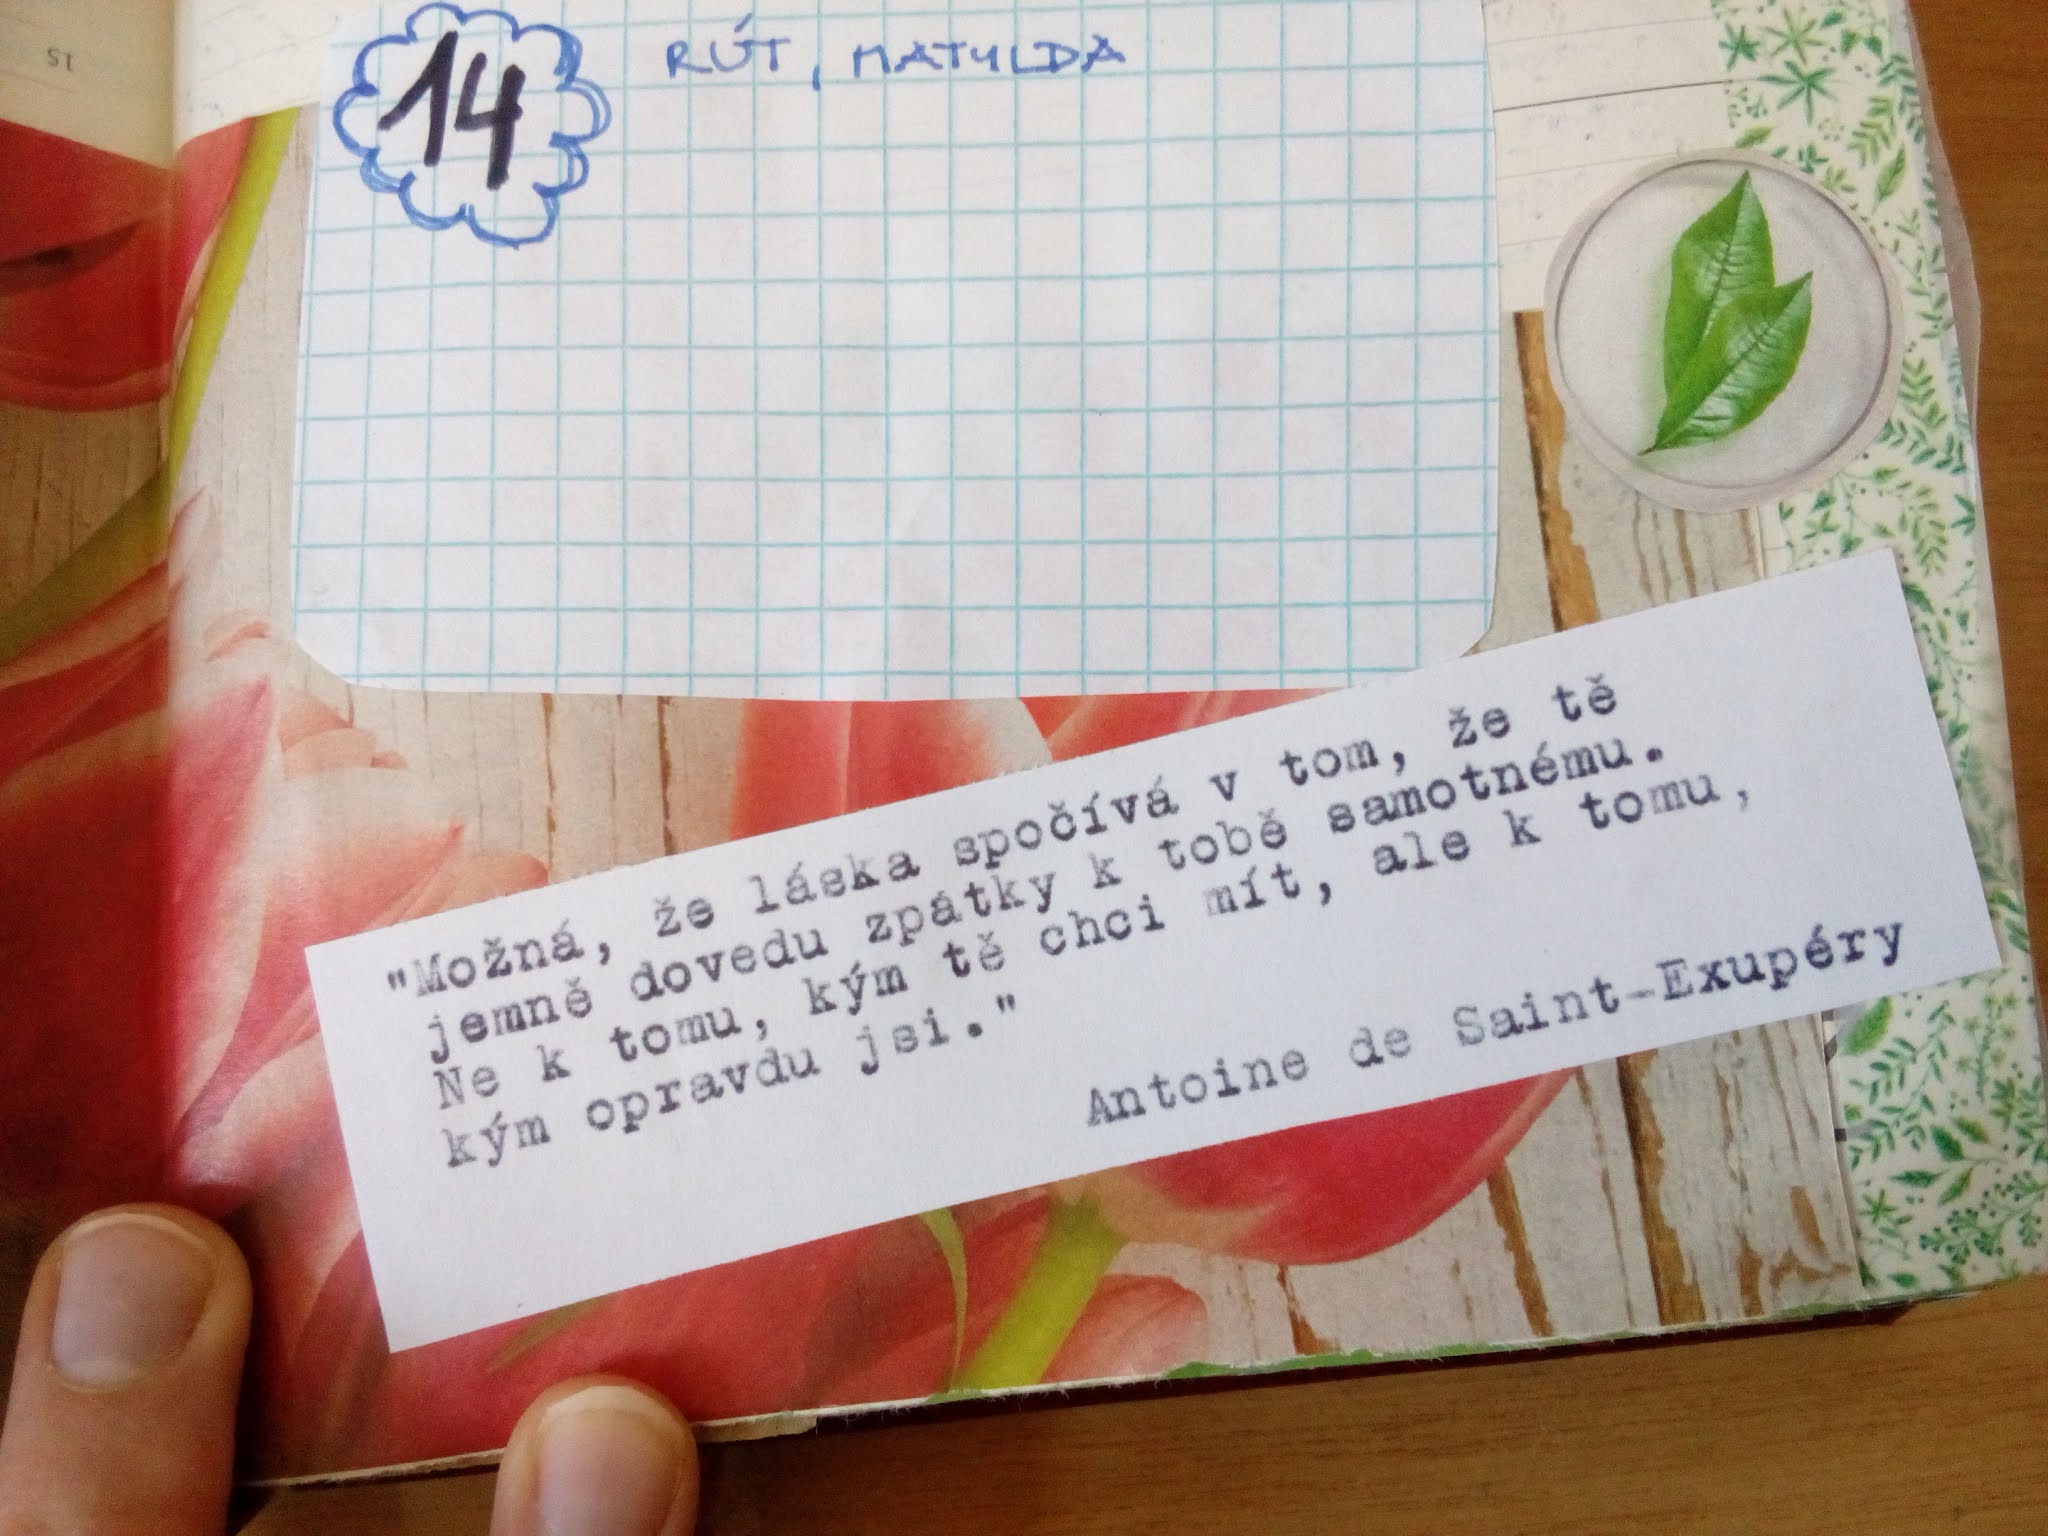 15
14
RÚT, MATYLDA
"Možná, že láska spočívá v tom, že tě
jemně dovedu zpátky k tobě samotnému.
Ne k tomu, kým tě chci mít, ale k tomu,
kým opravdu jsi."
Antoine de Saint-Exupéry